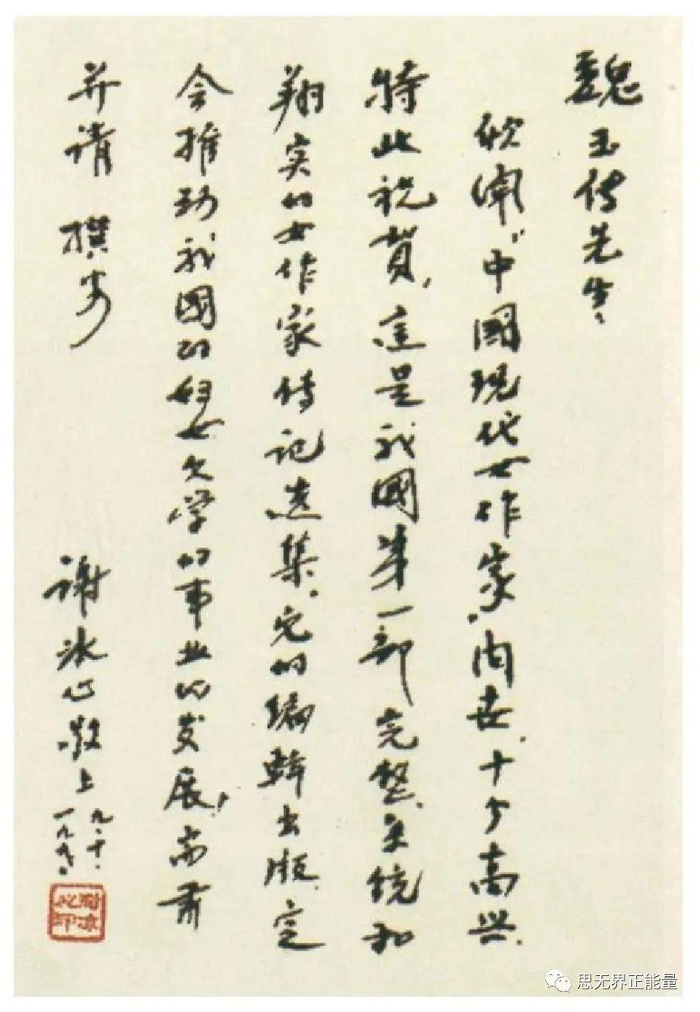 魏玉传先生：
欣闻"中國现代女作家"问世，十分高兴，
特此祝贺，这是我國第一部完整、系统和
翔实的女作家传记选集。它的编辑出版，定
会推动我國的妇女文学的事业的发展，
并请 撰安
谢冰心敬上
思无界正能量